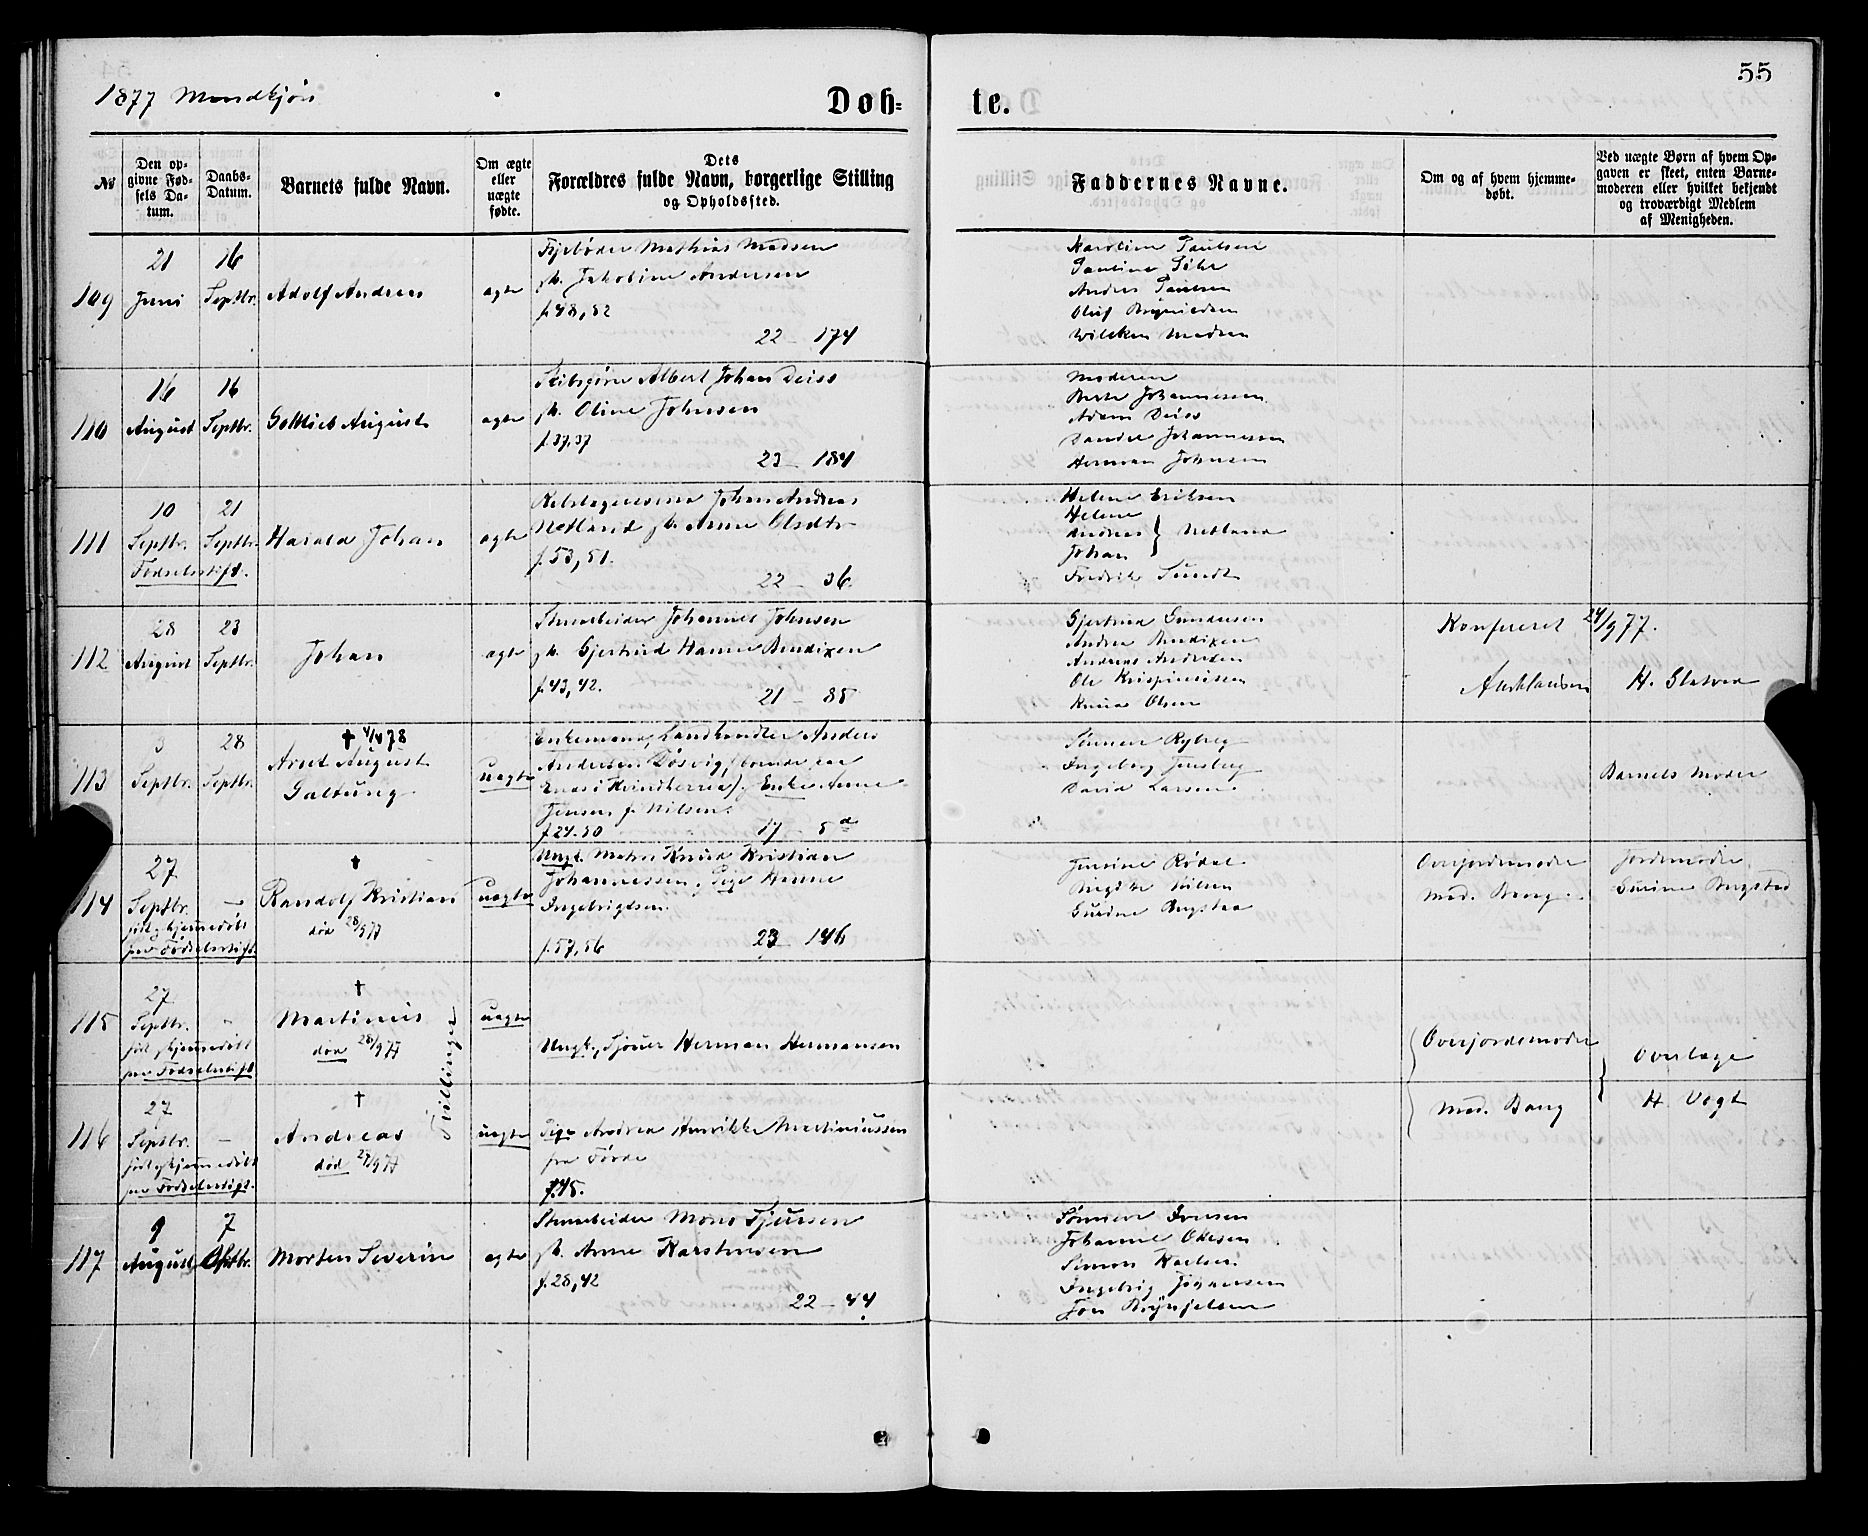 55
1877 Mandkjøn
Døb-
te.
№
Den op-
givne Fød-
sels Da-
tum.
Daabs-
Datum.
Barnets fulde Navn.
Om ægte
eller
uægte
fødte.
Dets
Forældres fulde Navn, borgerlige Stilling
og Opholdssted.
Faddernes Navne.
Om og af hvem hjemme-
døbt.
Ved uægte Børn af hvem Op-
gaven er skeet, enten Barne-
moderen eller hvilket bekjendt
og troværdigt Medlem
af Menigheden.
109
21
Juni
16
Septbr.
Adolf Andreas
ægte
Mathias Madsen
h. Jakobine Andersen
f. 48, 52
22 - 174
Karoline Paulsen
Pauline
Anders Paulsen
Oluf
Wilken Madsen
110
16
August
16
Septbr.
Gottlieb August
ægte
Albert Johan Deiss
h. Oline Johnsen
f. 37, 37
23 - 184
Moderen
Berte Johannessen
Adam Deiss
Johannessen
Herman Johnsen
111
10
Septbr.
Fødselsstift.
21
Septbr.
Harald Johan
ægte
Johan Andreas
Netland h. Anne Olsdtr
f. 53, 51.
22 - 36.
Helene Eriksen
Helene
Andreas } Netland
Johan
Fredrik Sundt
112
28
August
23
Septbr.
Johan
ægte
Stenarbeider Johannes Johnsen
h. Gjertrud Hanne Bendixen
f. 43, 42.
21 - 88
Gjertrud Gundersen
Andrea Bendixen
Andreas
Ole Krispinussen
Olsen
Konfereret 24/9 77.
H. Slatved
113
3
Septbr.
28
Septbr.
✝ 4/4 78
Arnt August
Galtung
uægte
Enkemand, Landhandler Anders
Andersen
Enke Anne
Jensen f. Nilsen.
f. 24. 30
17 - 5
Ryberg
Ingeborg
David Larsen.
Barnets Moder
114
27
Septbr.
føt. hjemmedøbt
paa Fødselsstift.
-
✝
Randolf Kristian
død 28/9 77
uægte
Ungk. Knud Kristian
Johannessen, Pige Hanne
Ingebrigtsen.
f. 57, 56
23 146
Jensine Rødal
Nilsen
Gurine Rngstad
Overjordemoder
Mad. Bang.
Jordemoder
Gurine Ringstad
115
27
Septbr.
føt. hjemmedøbt
paa Fødselsstift
-
✝
Martinus
død 28/9 77
Tvillinger
uægte
Ungk., Sjouer Herman Hermansen
Overjordemoder
Overlæge
116
27
Septbr.
føt. hjemmedøbt
paa Fødselsstift.
-
✝
Andreas
død 27/9 77
uægte
Pige Andrea Henrikke Martinussen
fra Førde
f. 45.
Mad. Bang
H. Vogt
117
9
August
7
Oktbr.
Morten Severin
ægte
Stenarbeider Mons Sjursen
h. Anne Karstensen
f. 28, 42
22 - 44
Johanne Odesen
Simon Karlsen
Ingebrig Johannsen
Jon Brynjelsen